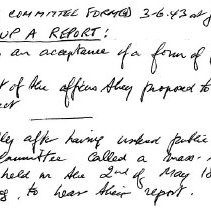 COMMITTEE FORMED 3-6.43 at
UP A REPORT:
an acceptance of a form of
of the officers they proposed to
ect
ly after having issued public
Committee called a mass-
held on the 2nd of May 18
to hear their report.